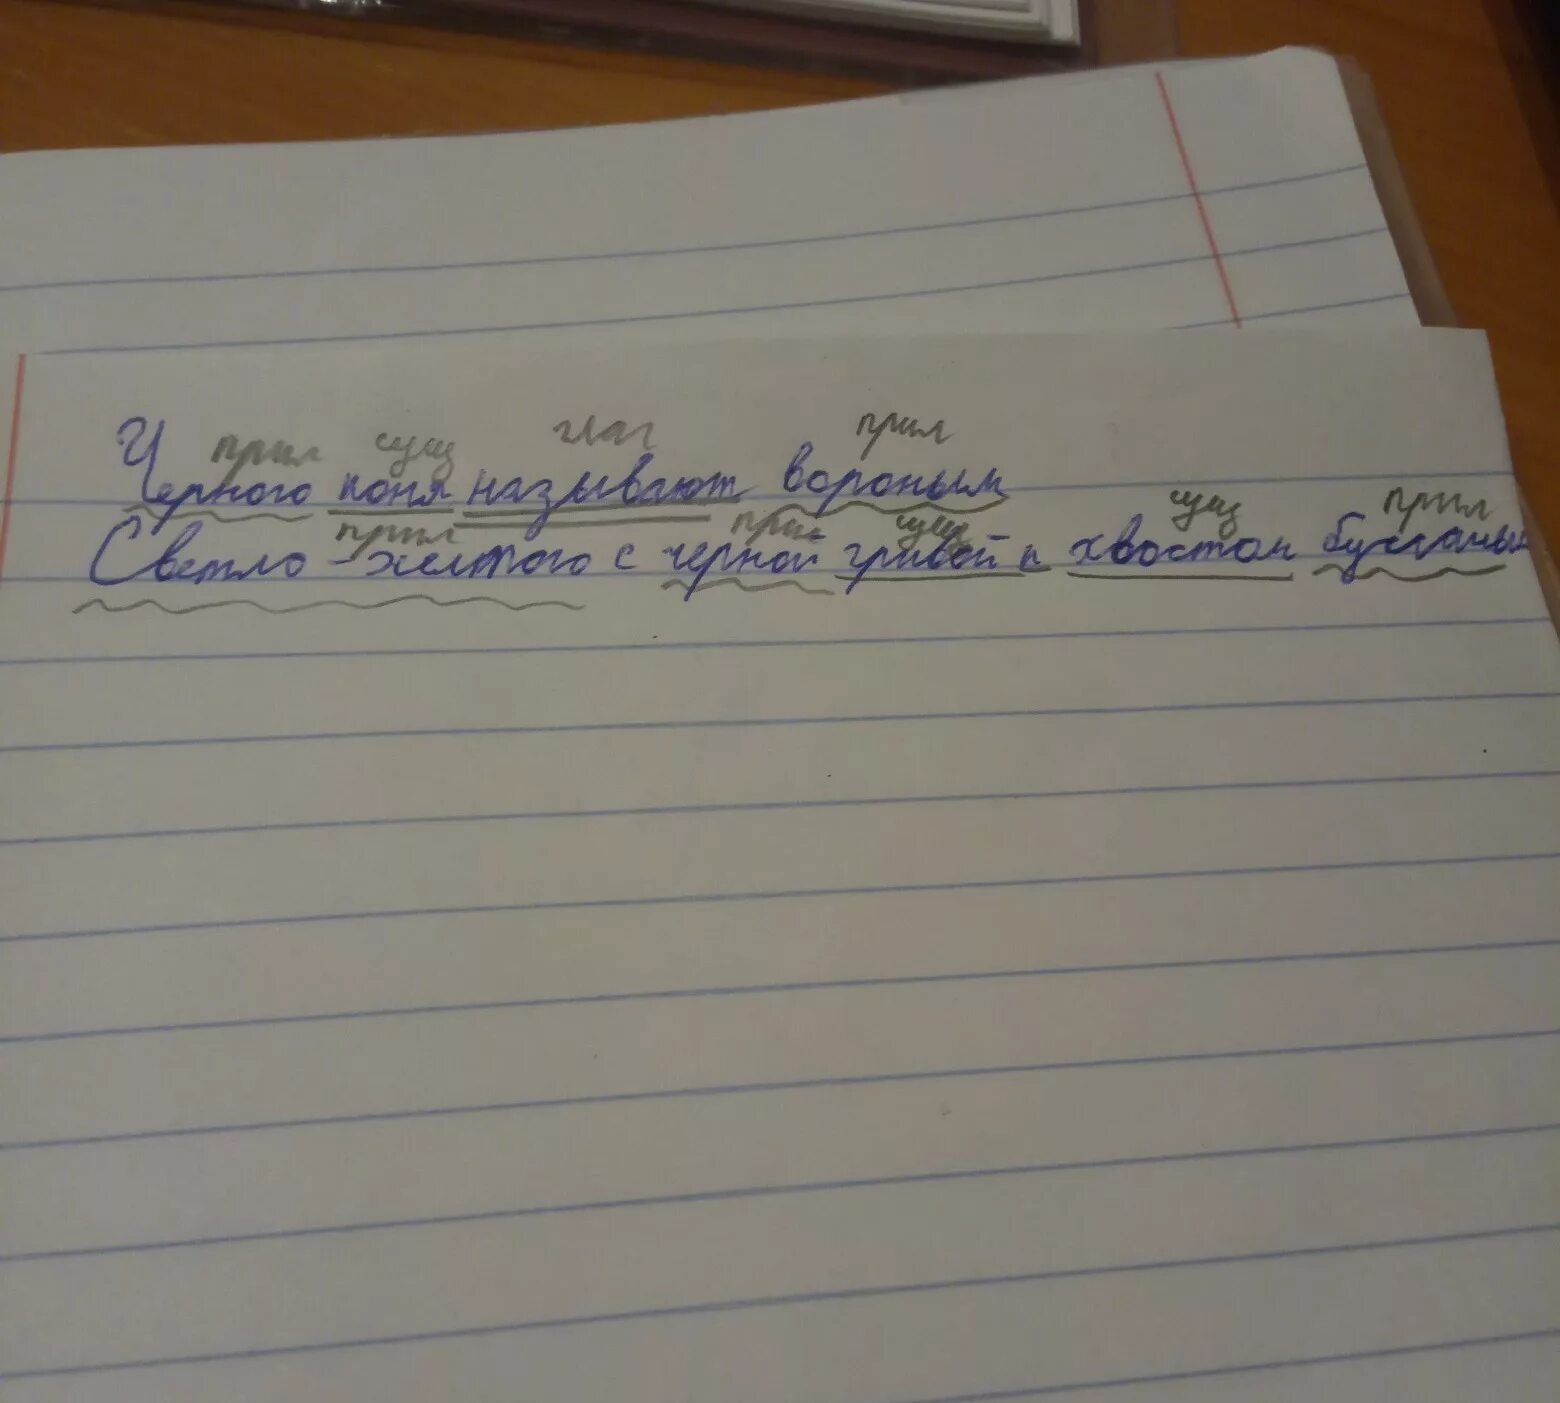 прил сущ глаг прил
Черного поня называют вороным
прил прил сущ сущ прил
Светло-желтого с черной гривой и хвостом буланым